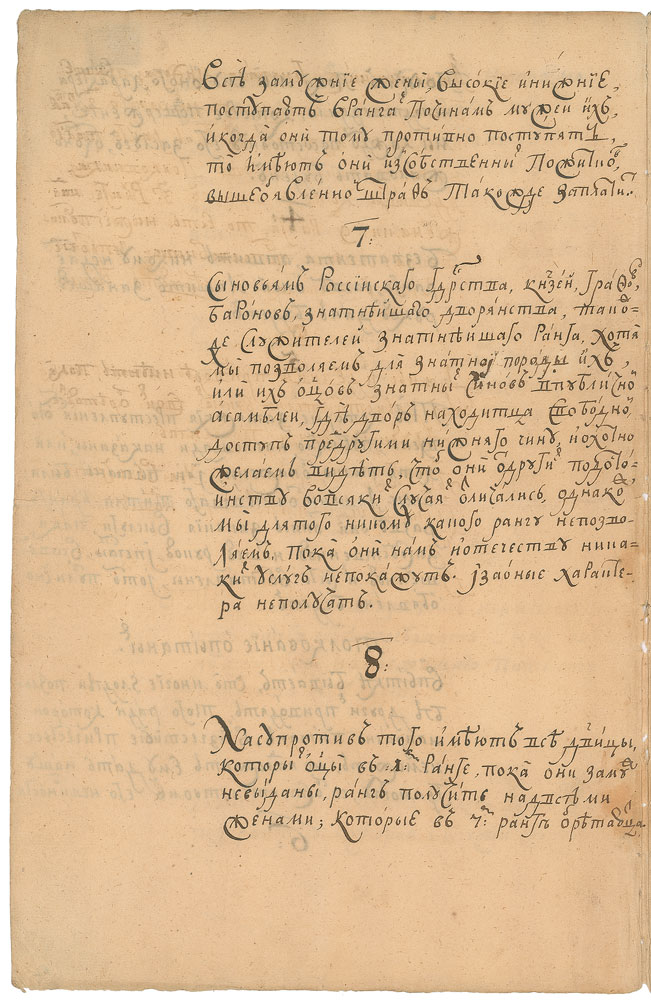 Всѣ замужнїе жены, высокїе и нижнїе,
поступаютъ в рангах по чинам мужей ихъ,
и когда они тому противно поступятъ,
то имѣютъ они из собственных пожитков
вышеобявленно штраѳъ такожде заплатит.
7:
Сыновьямъ Россиїскаго Гдрства, князей, граѳов,
баронов, знатнѣйшаго дворянства, також
де служителей знатнѣйшаго ранга, хотя
мы позволяемъ для знатной породы ихъ,
или ихъ оцов знатных чинов в публично
асамблеи, гдѣ дворъ находитца свободно
доступъ пред другими нижняго чину, и охотно
желаемъ видѣть, чтоб они от других по досто
инству во всяких случаях отличались, однакож
мы для того никому какого рангу непозво
ляемъ, пока они намъ и отечеству ника
ких услугъ непокажутъ. и за оные характе
ра неполучатъ.
8:
Насупротивъ того имѣютъ всѣ дѣвицы,
которых оцы въ 1м рангѣ, пока они замуж
невыданы, рангъ получить над всѣми
женами; которые въ 7м рангѣ обрѣтаютца